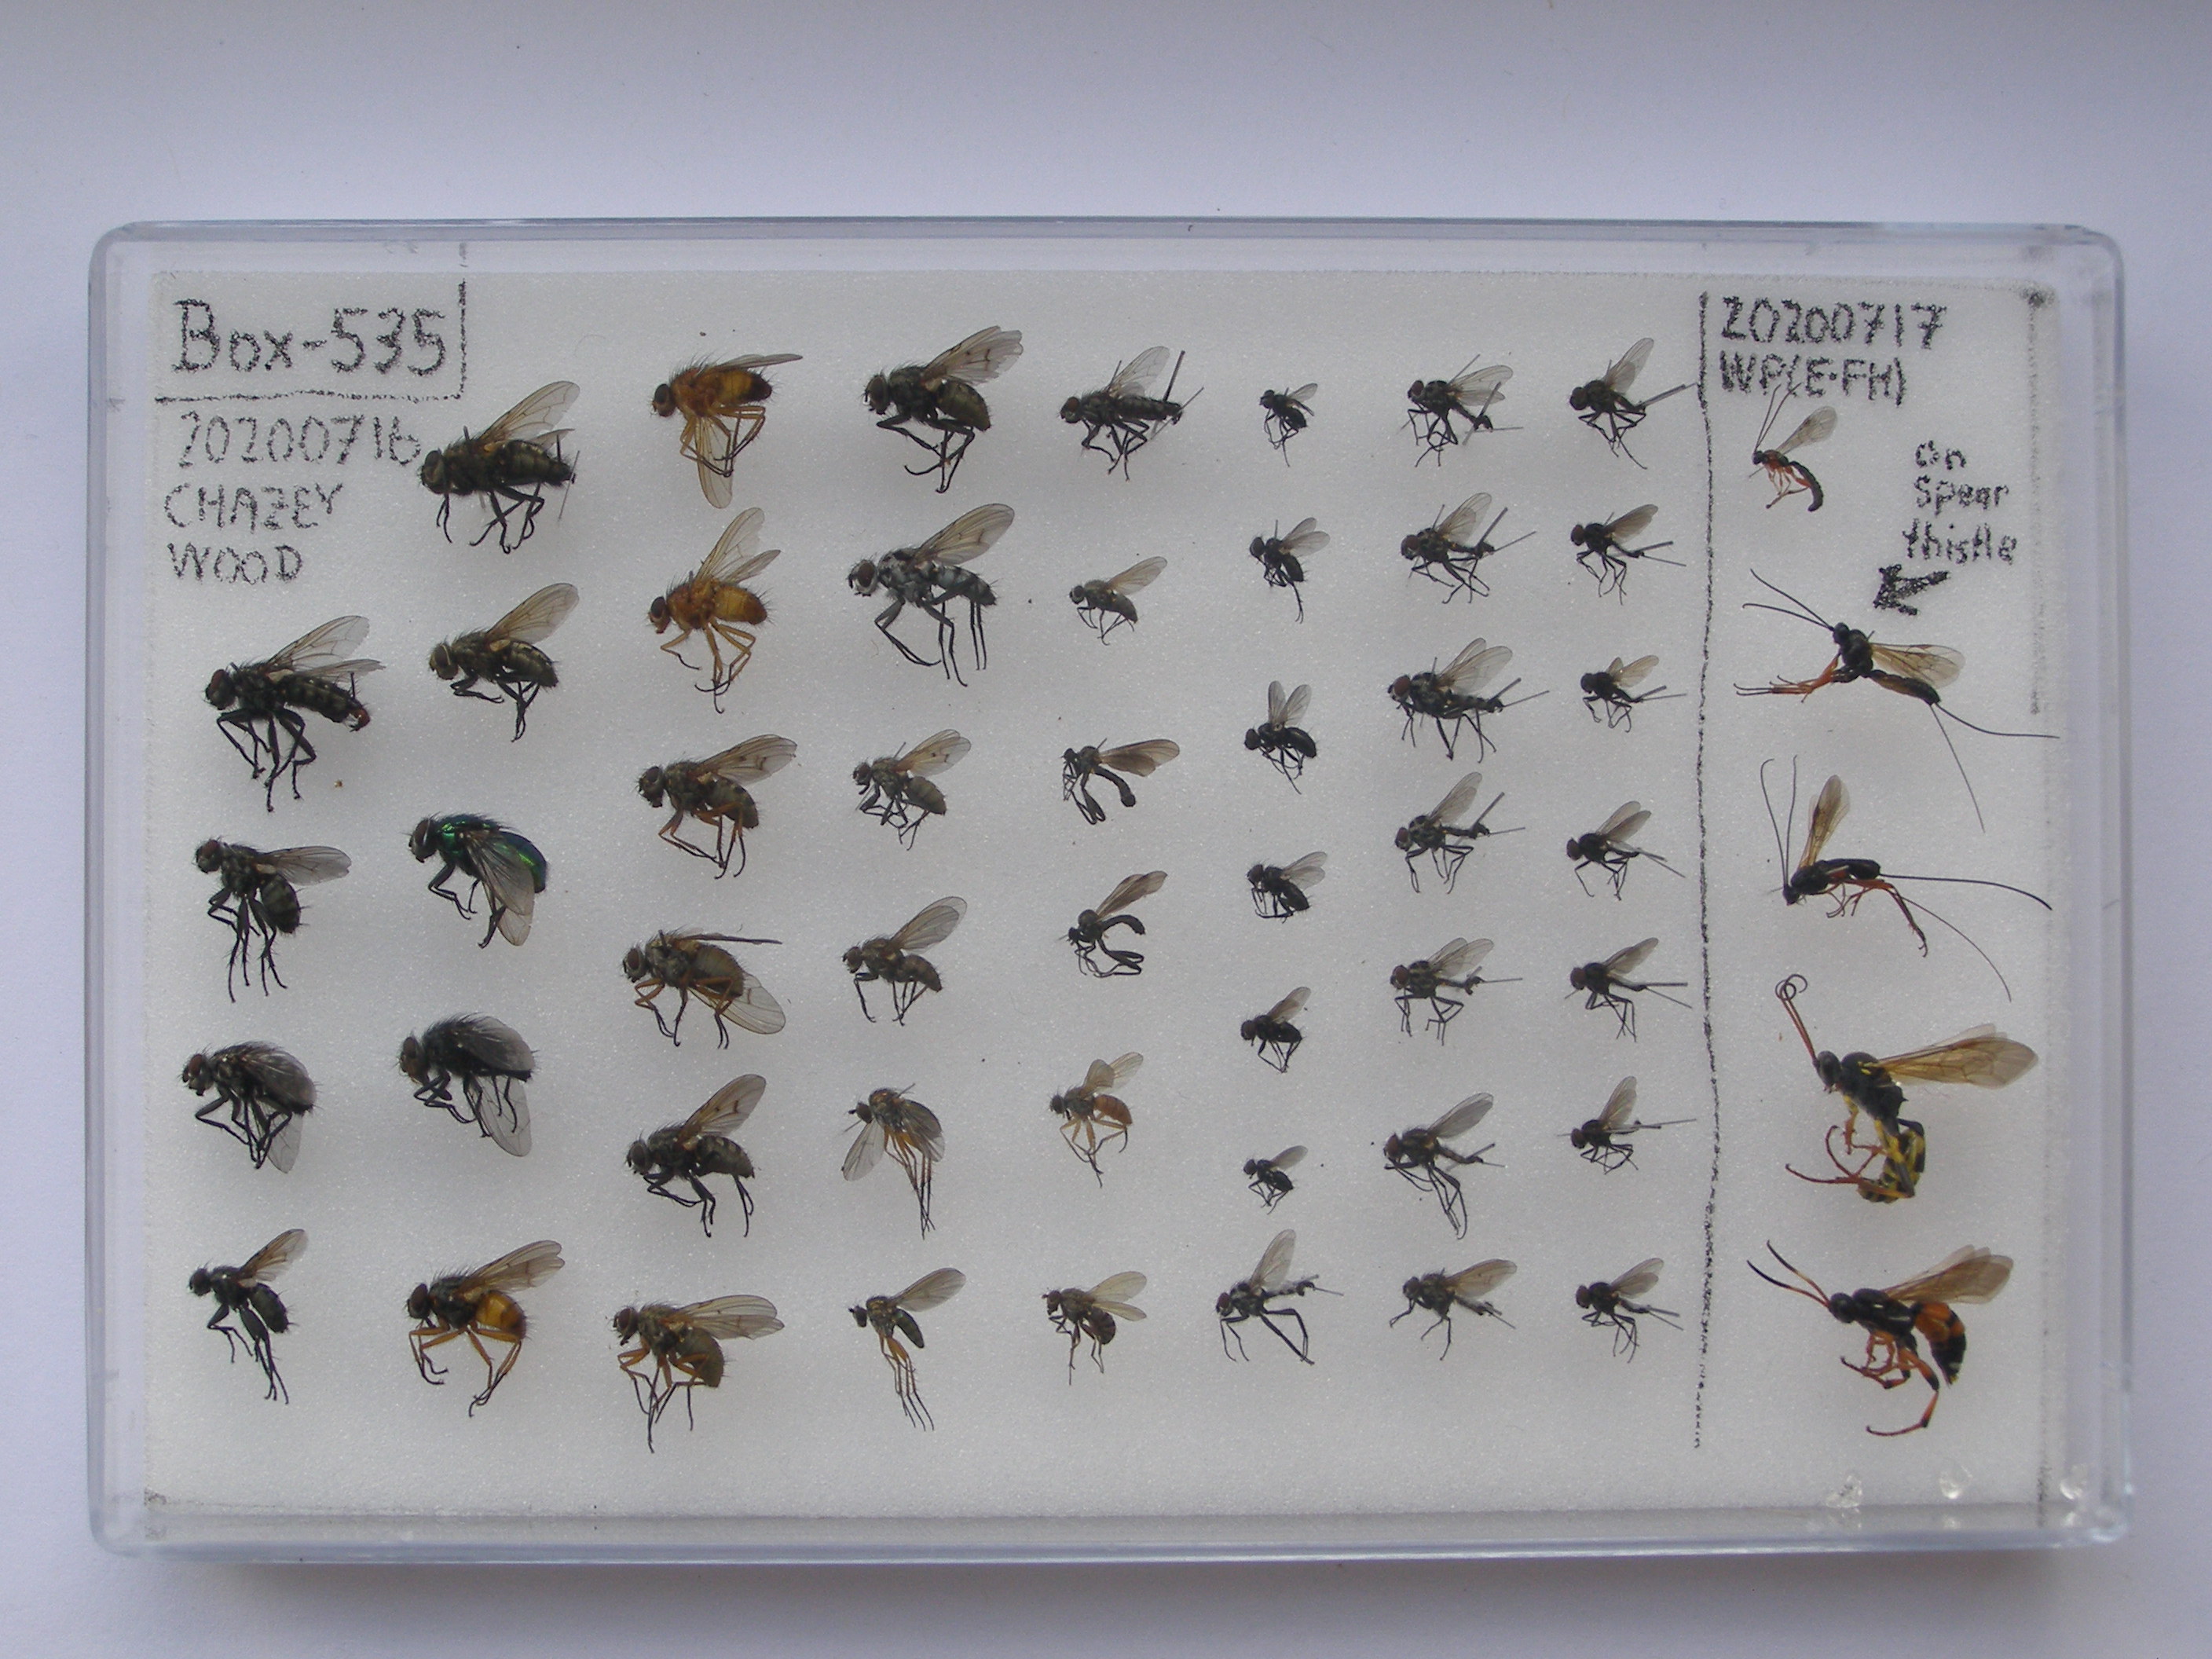 Box-535
20200716
CHAZEY
WOOD
20200717
WP(E·FH)
On
Spear
thistle